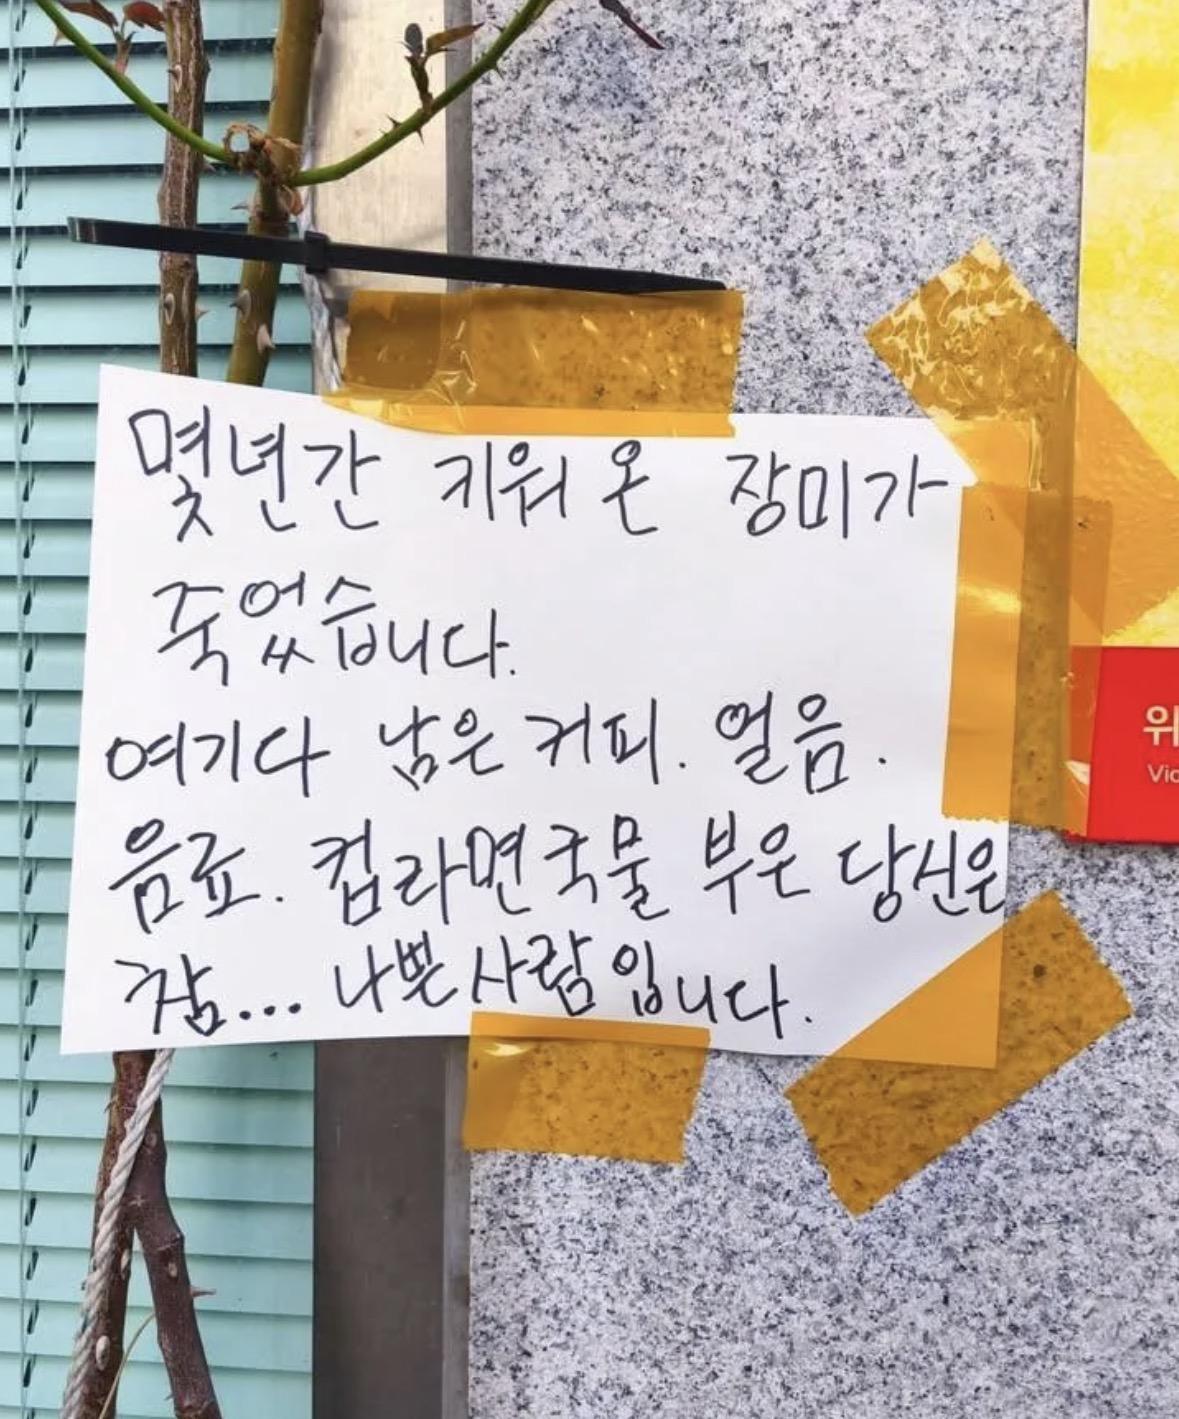 몇년간 키워 온 장미가
죽었습니다.
여기다 남은 커피. 얼음.
음료. 컵라면 국물 부은 당신은
참... 나쁜 사람 입니다.
위
Vic